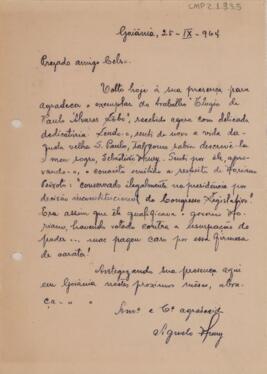 CMP2.1.835
Goiânia, 25-IX-964
Prezado amigo Celso
Volto hoje à sua presença para
agradecer o exemplar do trabalho "Elogio de
Paulo Alvares Lobo", recebido agora com delicada
dedicatória. Lendo-o, senti de novo a vida da
quela velha S. Paulo, tal como sabia descrevê-la
meu sogro, Sebastião. Senti por ele, apro
vando-o, o conceito emitido a respeito de Floriano
Peixoto: "conservado ilegalmente na presidência por
decisão inconstitucional do Congresso Legislativo".
Era assim que êle qualificava o governo Flo
riano, havendo votado contra a usurpação do
poder... mas pagou caro por essa firmeza
de caráter!
sua presença aqui
em Goiânia nestes proximos meses, abra
ça-o o
Amº e Cº agradecido